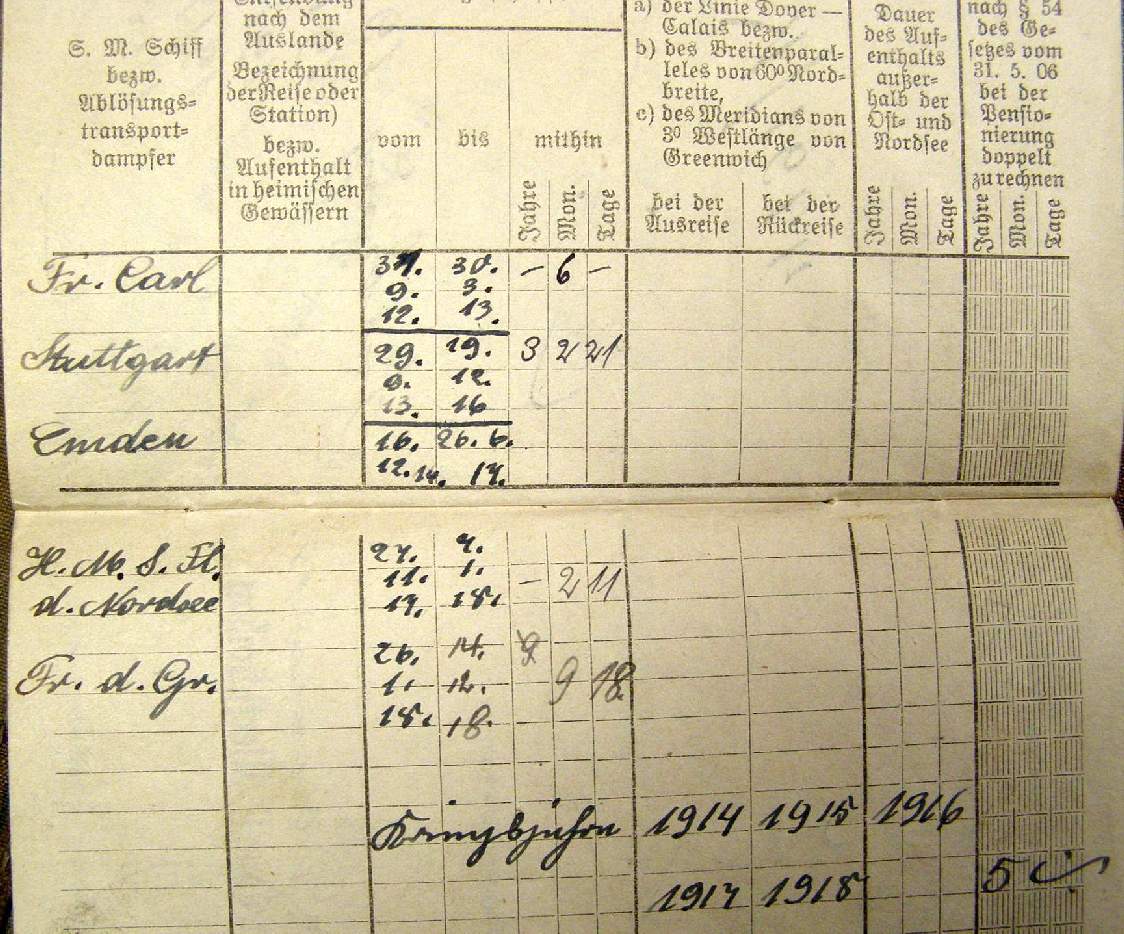 S. M. Schiff
bezw.
Ablösungs-
transport-
dampfer
nach dem
Auslande
Bezeichnung
der Reise oder
Station)
bezw.
Aufenthalt
in heimischen
Gewässern
vom bis mithin
Jahre Mon. Tage
a) der Linie Dover —
Calais bezw.
b) des Breitenparal-
leles von 60° Nord-
breite,
c) des Meridians von
3° Westlänge von
Greenwich
bei der Ausreise
bei der Rückreise
Dauer
des Auf-
enthalts
außer-
halb der
Ost- und
Nordsee
Jahre Mon. Tage
nach § 54
des Ge-
setzes vom
31. 5. 06
bei der
Pensio-
nierung
doppelt
zu rechnen
Jahre Mon. Tage
Fr. Carl 30. – 6 –
9. 3.
12. 13.
Stuttgart 29. 19. 3 2 21
9. 12.
13. 16
Emden 16. 26. 6.
12. 14. 17.
H. M. S. Fl. 27. 7.
11. 1. – 2 11
d. Nordsee 17. 18.
26. 14.
Fr. d. Gr. 1. 12. 9 18.
18. 18.
Kriegsjahre 1914 1915 1916
1917 1918 5